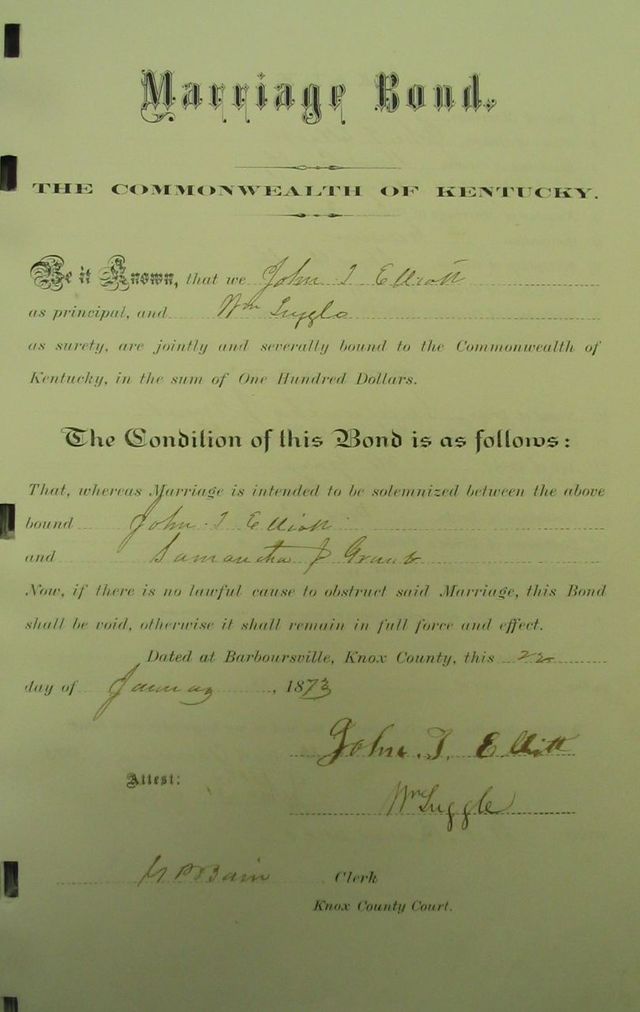 Marriage Bond.
THE COMMONWEALTH OF KENTUCKY.
Be it Known, that we John T Elliott
as principal, and Wm Tuggle
as surety, are jointly and severally bound to the Commonwealth of
Kentucky, in the sum of One Hundred Dollars.
The Condition of this Bond is as follows:
That, whereas Marriage is intended to be solemnized between the above
bound John T Elliott
and Samantha J
Now, if there is no lawful cause to obstruct said Marriage, this Bond
shall be void, otherwise it shall remain in full force and effect.
Dated at Barboursville, Knox County, this 22
day of January, 1873
John. T. Elliott
Attest:
Wm Tuggle
Bain Clerk
Knox County Court.